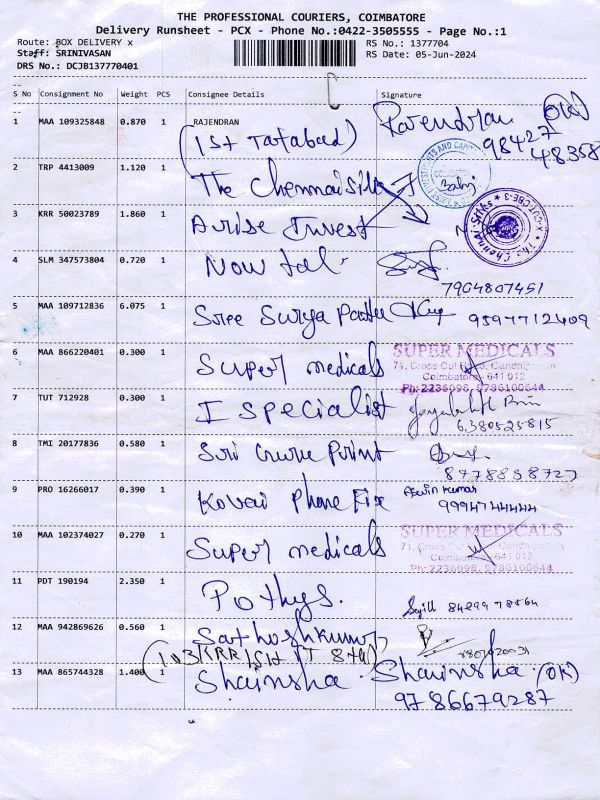 THE PROFESSIONAL COURIERS, COIMBATORE
Delivery Runsheet - PCX - Phone No.:0422-3505555 - Page No.:1
Route: BOX DELIVERY x
RS No.: 1377704
Staff: SRINIVASAN
RS Date: 05-Jun-2024
DRS No.: DCJB137770401
S No Consignment No Weight PCS Consignee Details Signature
1 MAA 109325848 0.870 1 RAJENDRAN Rajendran (OK)
(1st Tatabad) 98427
48358
2 TRP 4413009 1.120 1 The Chennai Silk
3 KRR 50023789 1.860 1 Arise Invest
4 SLM 347573804 0.720 1 Now tal
7904807451
5 MAA 109712836 6.075 1 Sree Surya 9597712409
6 MAA 866220401 0.300 1 Super medicals
SUPER MEDICALS
71, Cross Cut Road,
Coimbatore - 641 012
Ph: 2236098, 9786100644
7 TUT 712928 0.300 1 I specialist
6380525815
8 TMI 20177836 0.580 1 Sri Print
8778858727
9 PRO 16266017 0.390 1 Kovai Phone Fix Aswin Kumar
9994744444
10 MAA 102374027 0.270 1 Super medicals
SUPER MEDICALS
71, Cross Cut
Coimbatore - 641 012
Ph: 2236098, 9786100644
11 PDT 190194 2.350 1 Pothys.
12 MAA 942869626 0.560 1 Sathoshkumar
13 MAA 865744328 1.400 1 Shainsha Shainsha (OK)
9786679287